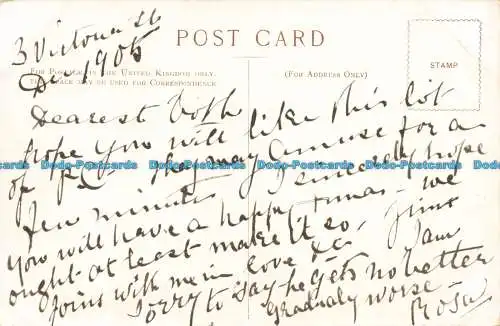 3 Victoria St
Dec 1905
POST CARD
FOR POSTAGE IN THE UNITED KINGDOM ONLY,
THIS SPACE MAY BE USED FOR CORRESPONDENCE
(FOR ADDRESS ONLY)
STAMP
Dearest Both
I hope you will like this lot
of P.Cs they may amuse for a
few minutes I sincerely hope
you will have a happy Xmas - we
ought at least make it so. Jims
Joins with me in love &c I am
sorry to say he gets no better
Gradualy worse
Rosa
Dodo-Postcards Dodo-Postcards Dodo-Postcards Dodo-Postcards